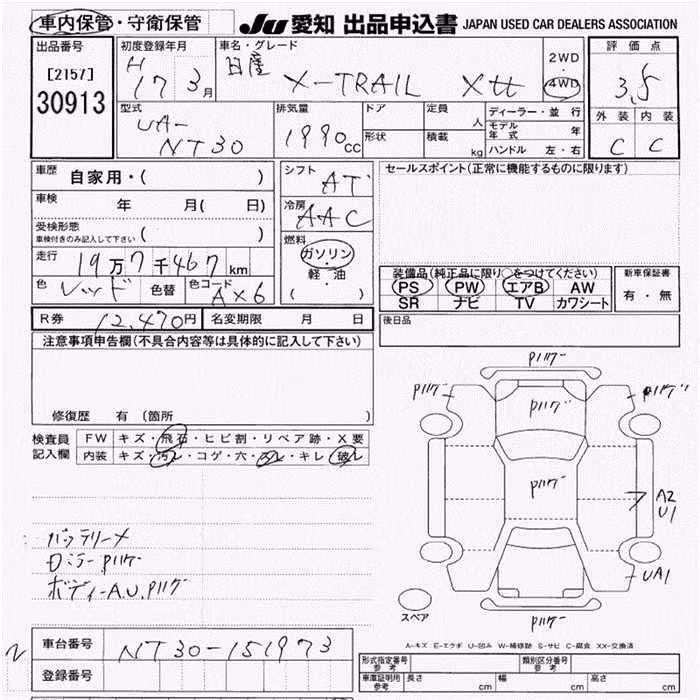 車内保管・守衛保管 JU 愛知 出品申込書 JAPAN USED CAR DEALERS ASSOCIATION
出品番号 初度登録年月 車名・グレード 評価点
[2157] H 17 3月 日産 X-TRAIL Xtt 2WD 4WD 3.5
30913
型式 排気量 ドア 定員 ディーラー・並行 外装 内装
UA- 人 モデル年式 年
NT30 1990cc 形状 積載 kg ハンドル 左・右 C C
車歴 自家用・( ) シフト AT セールスポイント(正常に機能するものに限ります)
車検 年 月( 日) 冷房 AAC
受検形態
車検付きのみ記入して下さい ( )
燃料
走行 19万7千467km ガソリン
・
軽・油
( )
装備品(純正品に限り○をつけてください) 新車保証書
色 レッド 色替 色コード AX6 PS PW エアB AW 有・無
SR ナビ TV カワシート
R券 12,470円 名変期限 月 日 後日品
注意事項申告欄(不具合内容等は具体的に記入して下さい)
修復歴 有 (箇所 )
検査員 FW キズ・飛石・ヒビ割・リペア跡・X要
記入欄 内装 キズ・汚レ・コゲ・穴・スレ・キレ・破レ
バッテリーメ
Dミラーハゲ
ボディーA.U.ハゲ
ハゲ
ハゲ ハゲ
ハゲ
ハゲ
A2
U1
UA1
ハゲ
スペア
A-キズ E-エクボ U-凹み W-補修跡 S-サビ C-腐食 XX-交換済
車台番号 NT30-151973
登録番号
形式指定番号 参考 類別区分番号 参考
車庫証明用 参考 長さ cm 幅 cm 高さ cm